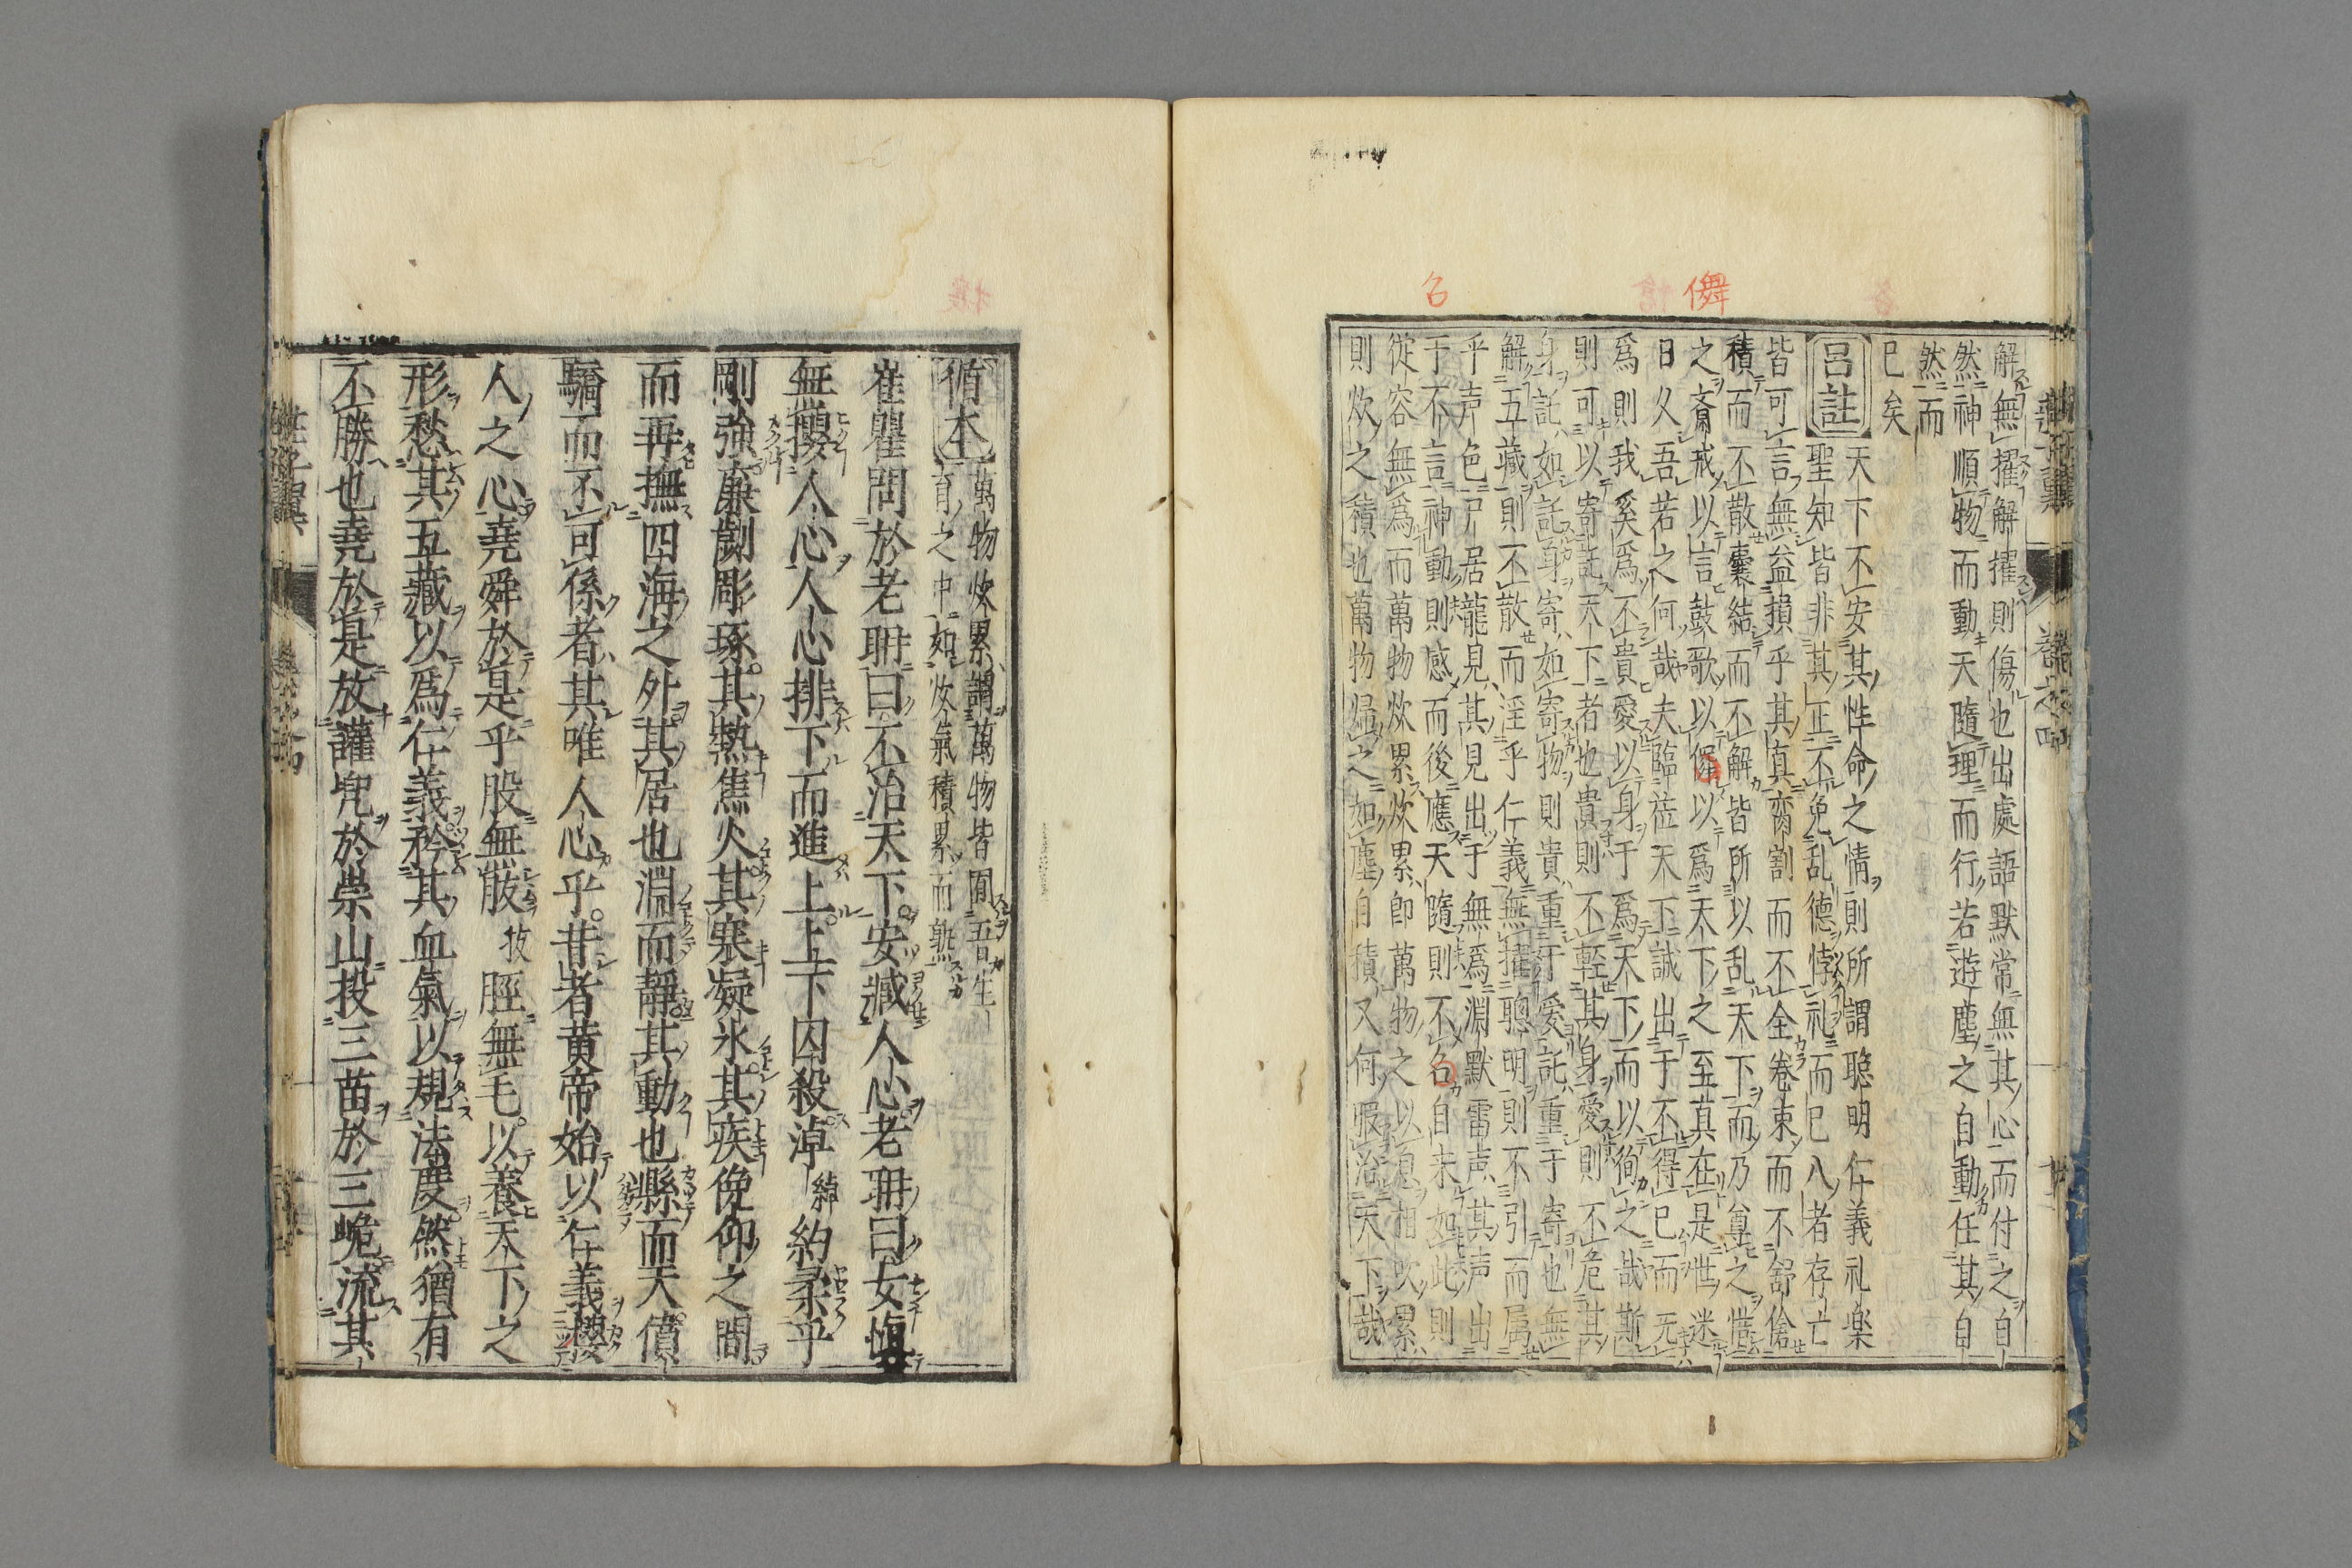 解無擢解擢則傷也出處語默常無其心而付之自
然神順物而動天隨理而行若遊塵之自動任其自
然而
已矣
呂註 天下不安其性命之情則所謂聡明仁義礼楽
聖知皆非其正不免乱德悖礼而已八者存亡
皆可言無益損乎其真脔割而不全卷束而不舒傖
積而不散囊結而不解皆所以乱天下而乃尊之惜
之齋戒以言鼓歌以儛以為天下之至真在是世迷
日久吾若之何哉夫臨莅天下誠出于不得已而无
爲則我奚爲不貴愛以身于爲天下而以徇之哉斯
則可以寄託天下者也貴則不輕其身愛則不危其
身託如託身寄如寄物則貴重于愛託重于寄也無
解五藏則不散而淫乎仁義無擢聰明則不引而属
乎声色尸居龍見其見出于無爲淵默雷声其声出
于不言神動則感而後應天隨則不召自来如此則
從容無爲而萬物炊累炊累即萬物之以息相吹累
則炊之積也萬物歸之如塵自積又何暇治天下哉
循本 萬物炊累謂萬物皆囿吾生
育之中如炊氣積累而熟
崔瞿問於老聃曰不治天下安臧人心老聃曰女愼
無攖人心人心排下而進上上下囚殺淖 綽 約柔乎
剛強廉劌彫琢其熱焦火其寒凝氷其疾俛仰之間
而再撫四海之外其居也淵而靜其動也縣而天僨
驕而不可係者其唯人心乎昔者黄帝始以仁義攖
人之心堯舜於是乎股無胈 拔 脛無毛以養天下之
形愁其五藏以爲仁義矜其血氣以規法度然猶有
不勝也堯於是放讙兜於崇山投三苗於三峗流其